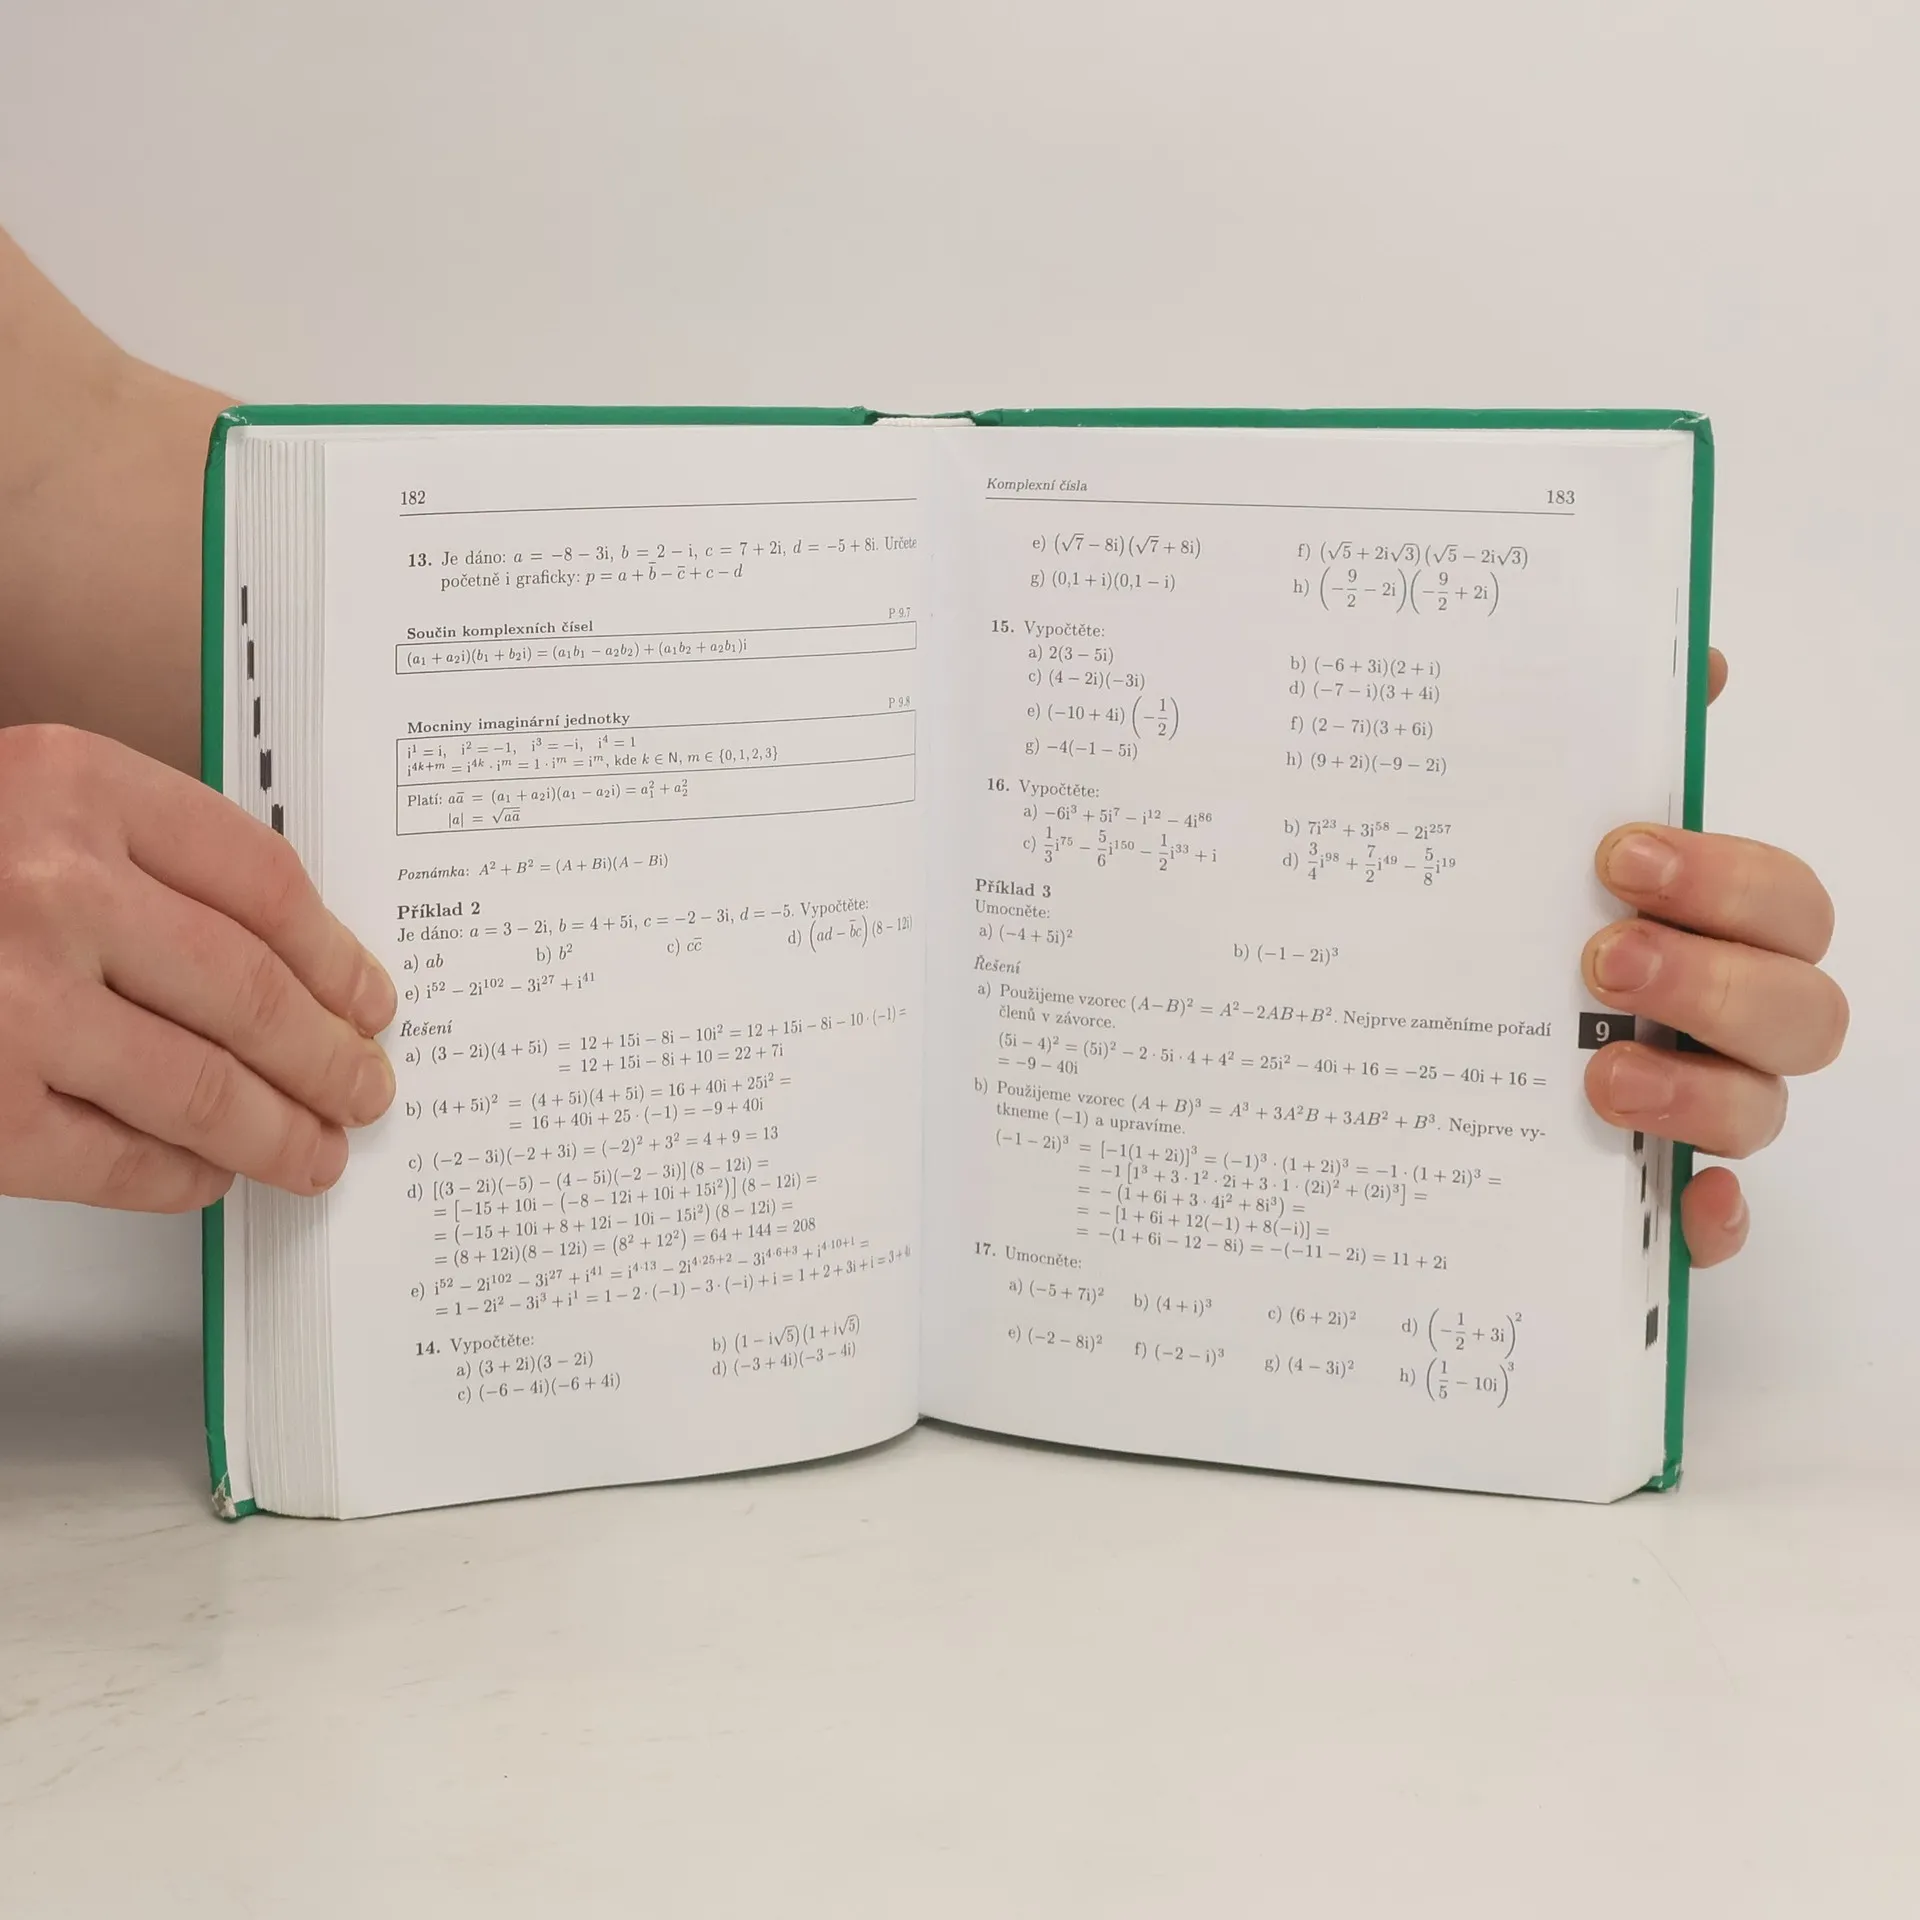 182
13. Je dáno: a = −8 − 3i, b = 2 − i, c = 7 + 2i, d = −5 + 8i. Určete
početně i graficky: p = a + b̄ − c̄ + c − d
P 9.7
Součin komplexních čísel
(a₁ + a₂i)(b₁ + b₂i) = (a₁b₁ − a₂b₂) + (a₁b₂ + a₂b₁)i
P 9.8
Mocniny imaginární jednotky
i¹ = i, i² = −1, i³ = −i, i⁴ = 1
i⁴ᵏ⁺ᵐ = i⁴ᵏ · iᵐ = 1 · iᵐ = iᵐ, kde k ∈ N, m ∈ {0, 1, 2, 3}
Platí: aā = (a₁ + a₂i)(a₁ − a₂i) = a₁² + a₂²
|a| = √aā
Poznámka: A² + B² = (A + Bi)(A − Bi)
Příklad 2
Je dáno: a = 3 − 2i, b = 4 + 5i, c = −2 − 3i, d = −5. Vypočtěte:
a) ab b) b² c) cc̄ d) (ad − b̄c) (8 − 12i)
e) i⁵² − 2i¹⁰² − 3i²⁷ + i⁴¹
Řešení
a) (3 − 2i)(4 + 5i) = 12 + 15i − 8i − 10i² = 12 + 15i − 8i − 10 · (−1) =
= 12 + 15i − 8i + 10 = 22 + 7i
b) (4 + 5i)² = (4 + 5i)(4 + 5i) = 16 + 40i + 25i² =
= 16 + 40i + 25 · (−1) = −9 + 40i
c) (−2 − 3i)(−2 + 3i) = (−2)² + 3² = 4 + 9 = 13
d) [(3 − 2i)(−5) − (4 − 5i)(−2 − 3i)] (8 − 12i) =
= [−15 + 10i − (−8 − 12i + 10i + 15i²)] (8 − 12i) =
= (−15 + 10i + 8 + 12i − 10i − 15i²) (8 − 12i) =
= (8 + 12i)(8 − 12i) = (8² + 12²) = 64 + 144 = 208
e) i⁵² − 2i¹⁰² − 3i²⁷ + i⁴¹ = i⁴·¹³ − 2i⁴·²⁵⁺² − 3i⁴·⁶⁺³ + i⁴·¹⁰⁺¹ =
= 1 − 2i² − 3i³ + i¹ = 1 − 2 · (−1) − 3 · (−i) + i = 1 + 2 + 3i + i = 3 + 4i
14. Vypočtěte:
a) (3 + 2i)(3 − 2i) b) (1 − i√5)(1 + i√5)
c) (−6 − 4i)(−6 + 4i) d) (−3 + 4i)(−3 − 4i)
Komplexní čísla 183
e) (√7 − 8i)(√7 + 8i) f) (√5 + 2i√3)(√5 − 2i√3)
g) (0,1 + i)(0,1 − i) h) (−9/2 − 2i)(−9/2 + 2i)
15. Vypočtěte:
a) 2(3 − 5i) b) (−6 + 3i)(2 + i)
c) (4 − 2i)(−3i) d) (−7 − i)(3 + 4i)
e) (−10 + 4i)(−1/2) f) (2 − 7i)(3 + 6i)
g) −4(−1 − 5i) h) (9 + 2i)(−9 − 2i)
16. Vypočtěte:
a) −6i³ + 5i⁷ − i¹² − 4i⁸⁶ b) 7i²³ + 3i⁵⁸ − 2i²⁵⁷
c) 1/3 i⁷⁵ − 5/6 i¹⁵⁰ − 1/2 i³³ + i d) 3/4 i⁹⁸ + 7/2 i⁴⁹ − 5/8 i¹⁹
Příklad 3
Umocněte:
a) (−4 + 5i)² b) (−1 − 2i)³
Řešení
a) Použijeme vzorec (A−B)² = A²−2AB+B². Nejprve zaměníme pořadí
členů v závorce.
(5i − 4)² = (5i)² − 2 · 5i · 4 + 4² = 25i² − 40i + 16 = −25 − 40i + 16 =
= −9 − 40i
b) Použijeme vzorec (A + B)³ = A³ + 3A²B + 3AB² + B³. Nejprve vy-
tkneme (−1) a upravíme.
(−1 − 2i)³ = [−1(1 + 2i)]³ = (−1)³ · (1 + 2i)³ = −1 · (1 + 2i)³ =
= −1 [1³ + 3 · 1² · 2i + 3 · 1 · (2i)² + (2i)³] =
= − (1 + 6i + 3 · 4i² + 8i³) =
= − [1 + 6i + 12(−1) + 8(−i)] =
= −(1 + 6i − 12 − 8i) = −(−11 − 2i) = 11 + 2i
17. Umocněte:
a) (−5 + 7i)² b) (4 + i)³ c) (6 + 2i)² d) (−1/2 + 3i)²
e) (−2 − 8i)² f) (−2 − i)³ g) (4 − 3i)² h) (1/5 − 10i)³
9